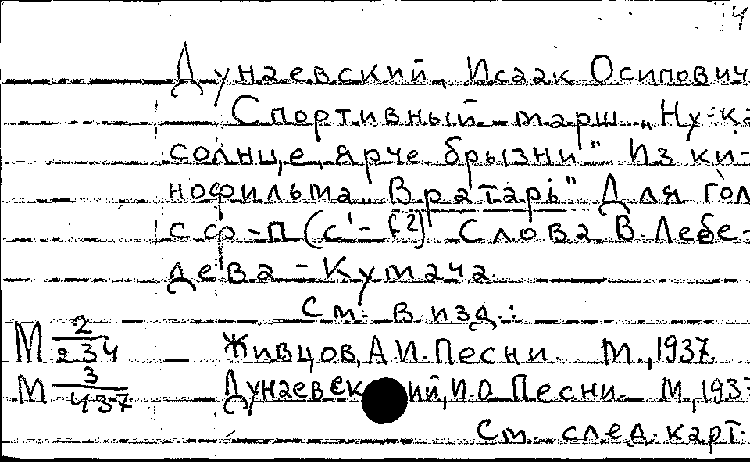 4
Дунаевский, Исаак Осипович
Спортивный марш „Ну-ка
солнце, ярче брызни" Из ки-
нофильма „Вратарь" Для гол
с ф-п (c¹-f²) Слова В. Лебе-
дева-Кумача.
См. в изд.:
М 2/234 Живцов, А.И. Песни. М., 1937.
М 3/437 Дунаевский, И.О. Песни. М., 193
См. след. карт.